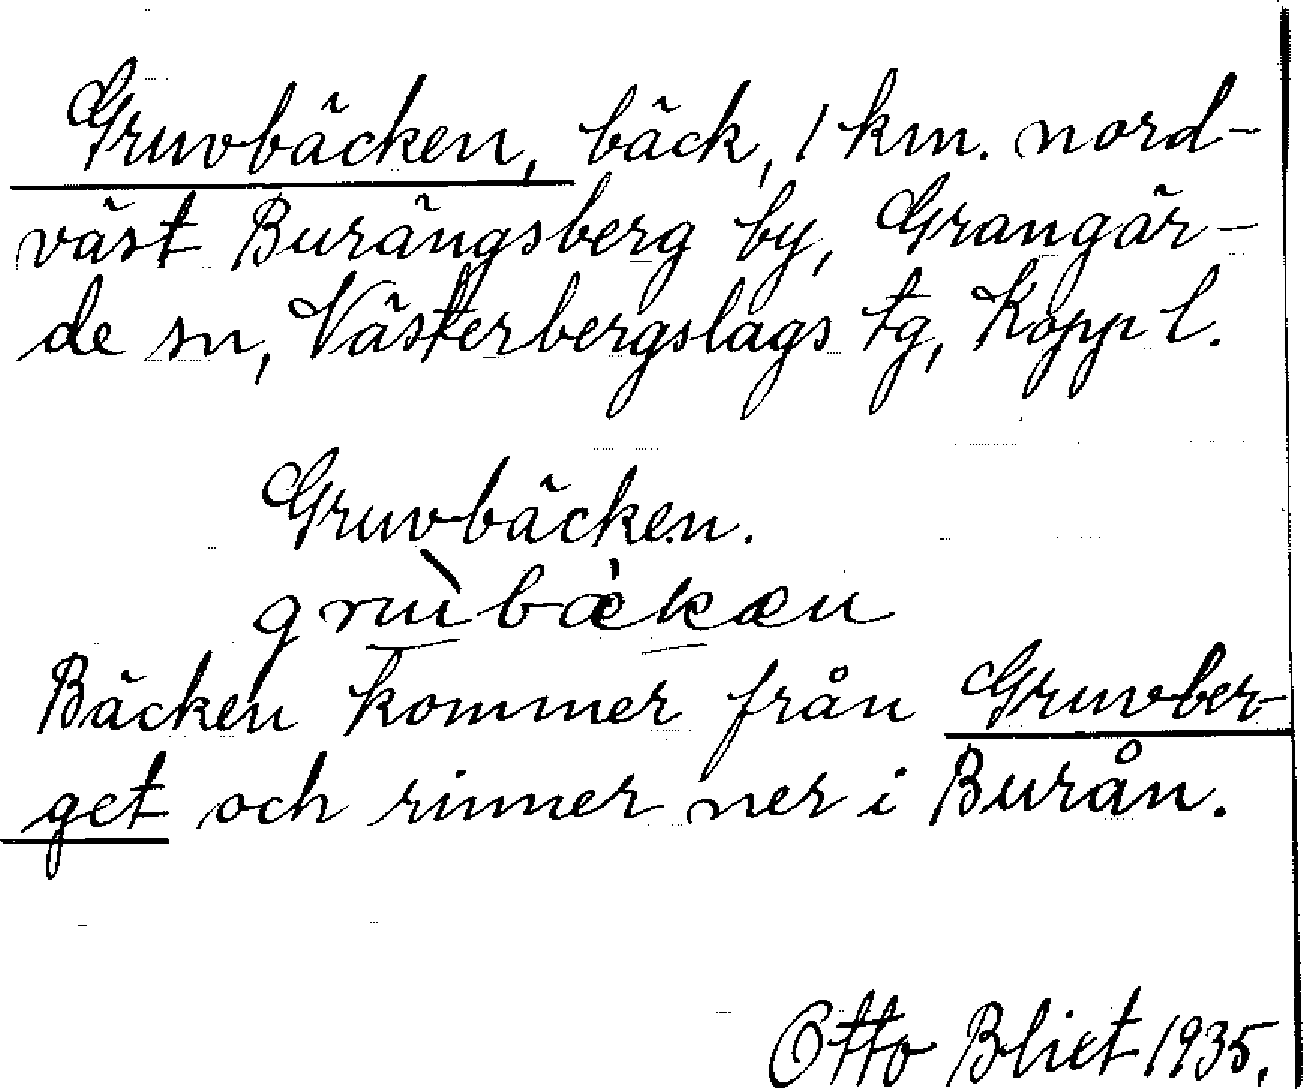 Gruvbäcken, bäck, 1 km. nord-
väst Burängsberg by, Grangär-
de sn, Västerbergslags tg, Kopp l.
Gruvbäcken.
grùbæ̀kæn
Bäcken kommer från Gruvber-
get och rinner ner i Burån.
Otto Blixt 1935.